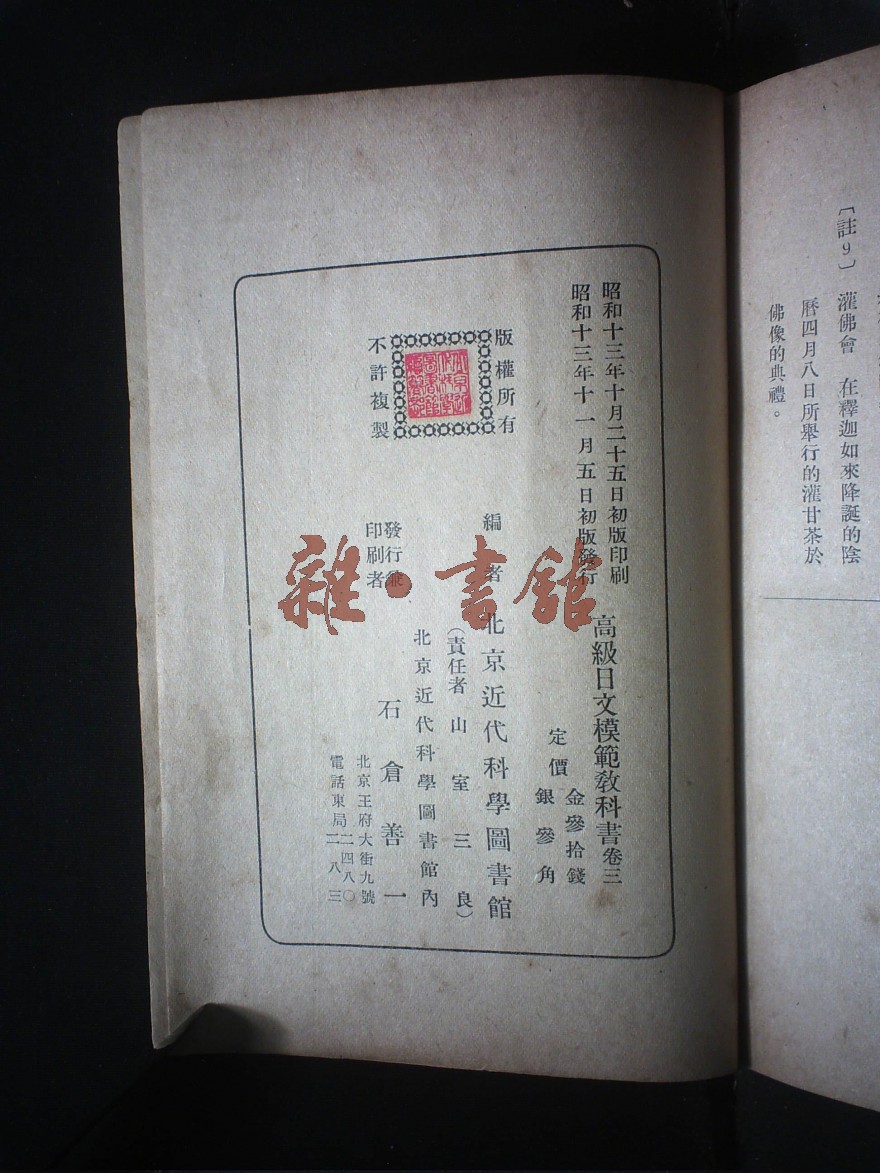 〔註9〕 灌佛會 在釋迦如來降誕的陰
曆四月八日所舉行的灌甘茶於
佛像的典禮。
昭和十三年十月二十五日初版印刷
昭和十三年十一月五日初版發行
高級日文模範教科書卷三
定價
金參拾錢
銀參角
版權所有
不許複製
編者
北京近代科學圖書館
(責任者 山室三良)
北京近代科學圖書館內
發行兼
印刷者
石倉善一
北京王府大街九號
電話東局二四八〇
二八三
雜·書館